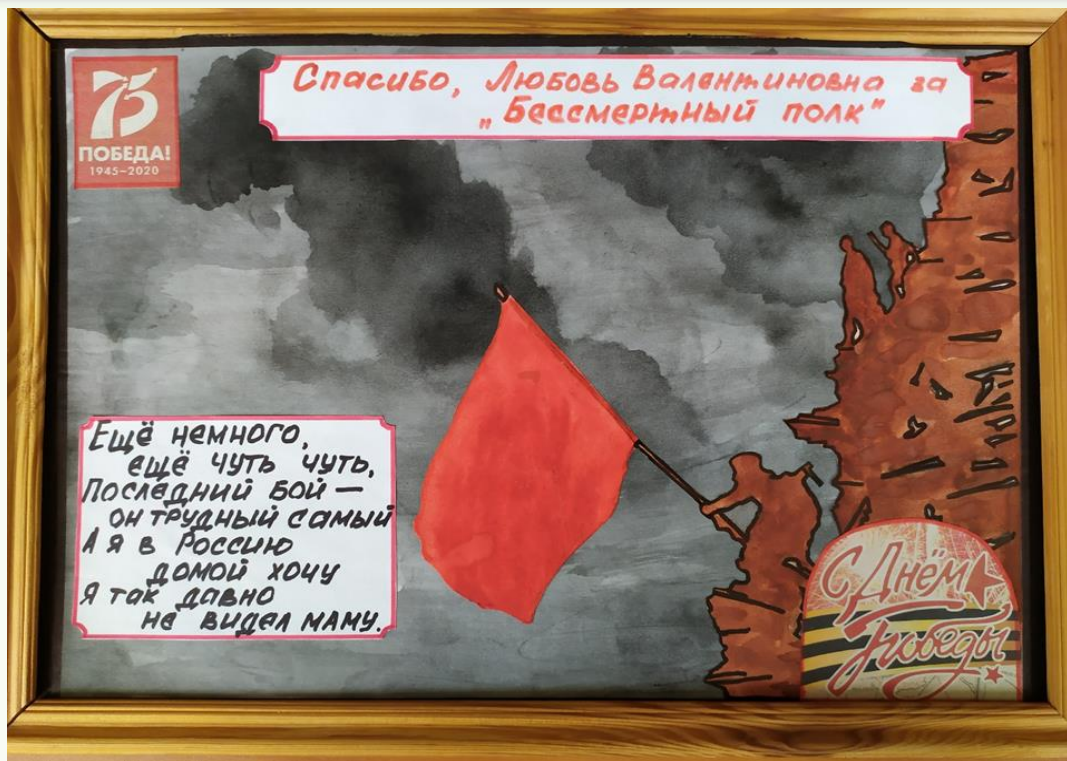 75
ПОБЕДА!
1945–2020
Спасибо, Любовь Валентиновна за
„Бессмертный полк"
Ещё немного,
ещё чуть чуть,
Последний бой —
он трудный самый
А я в Россию
домой хочу
Я так давно
не видел маму.
С Днём
Победы